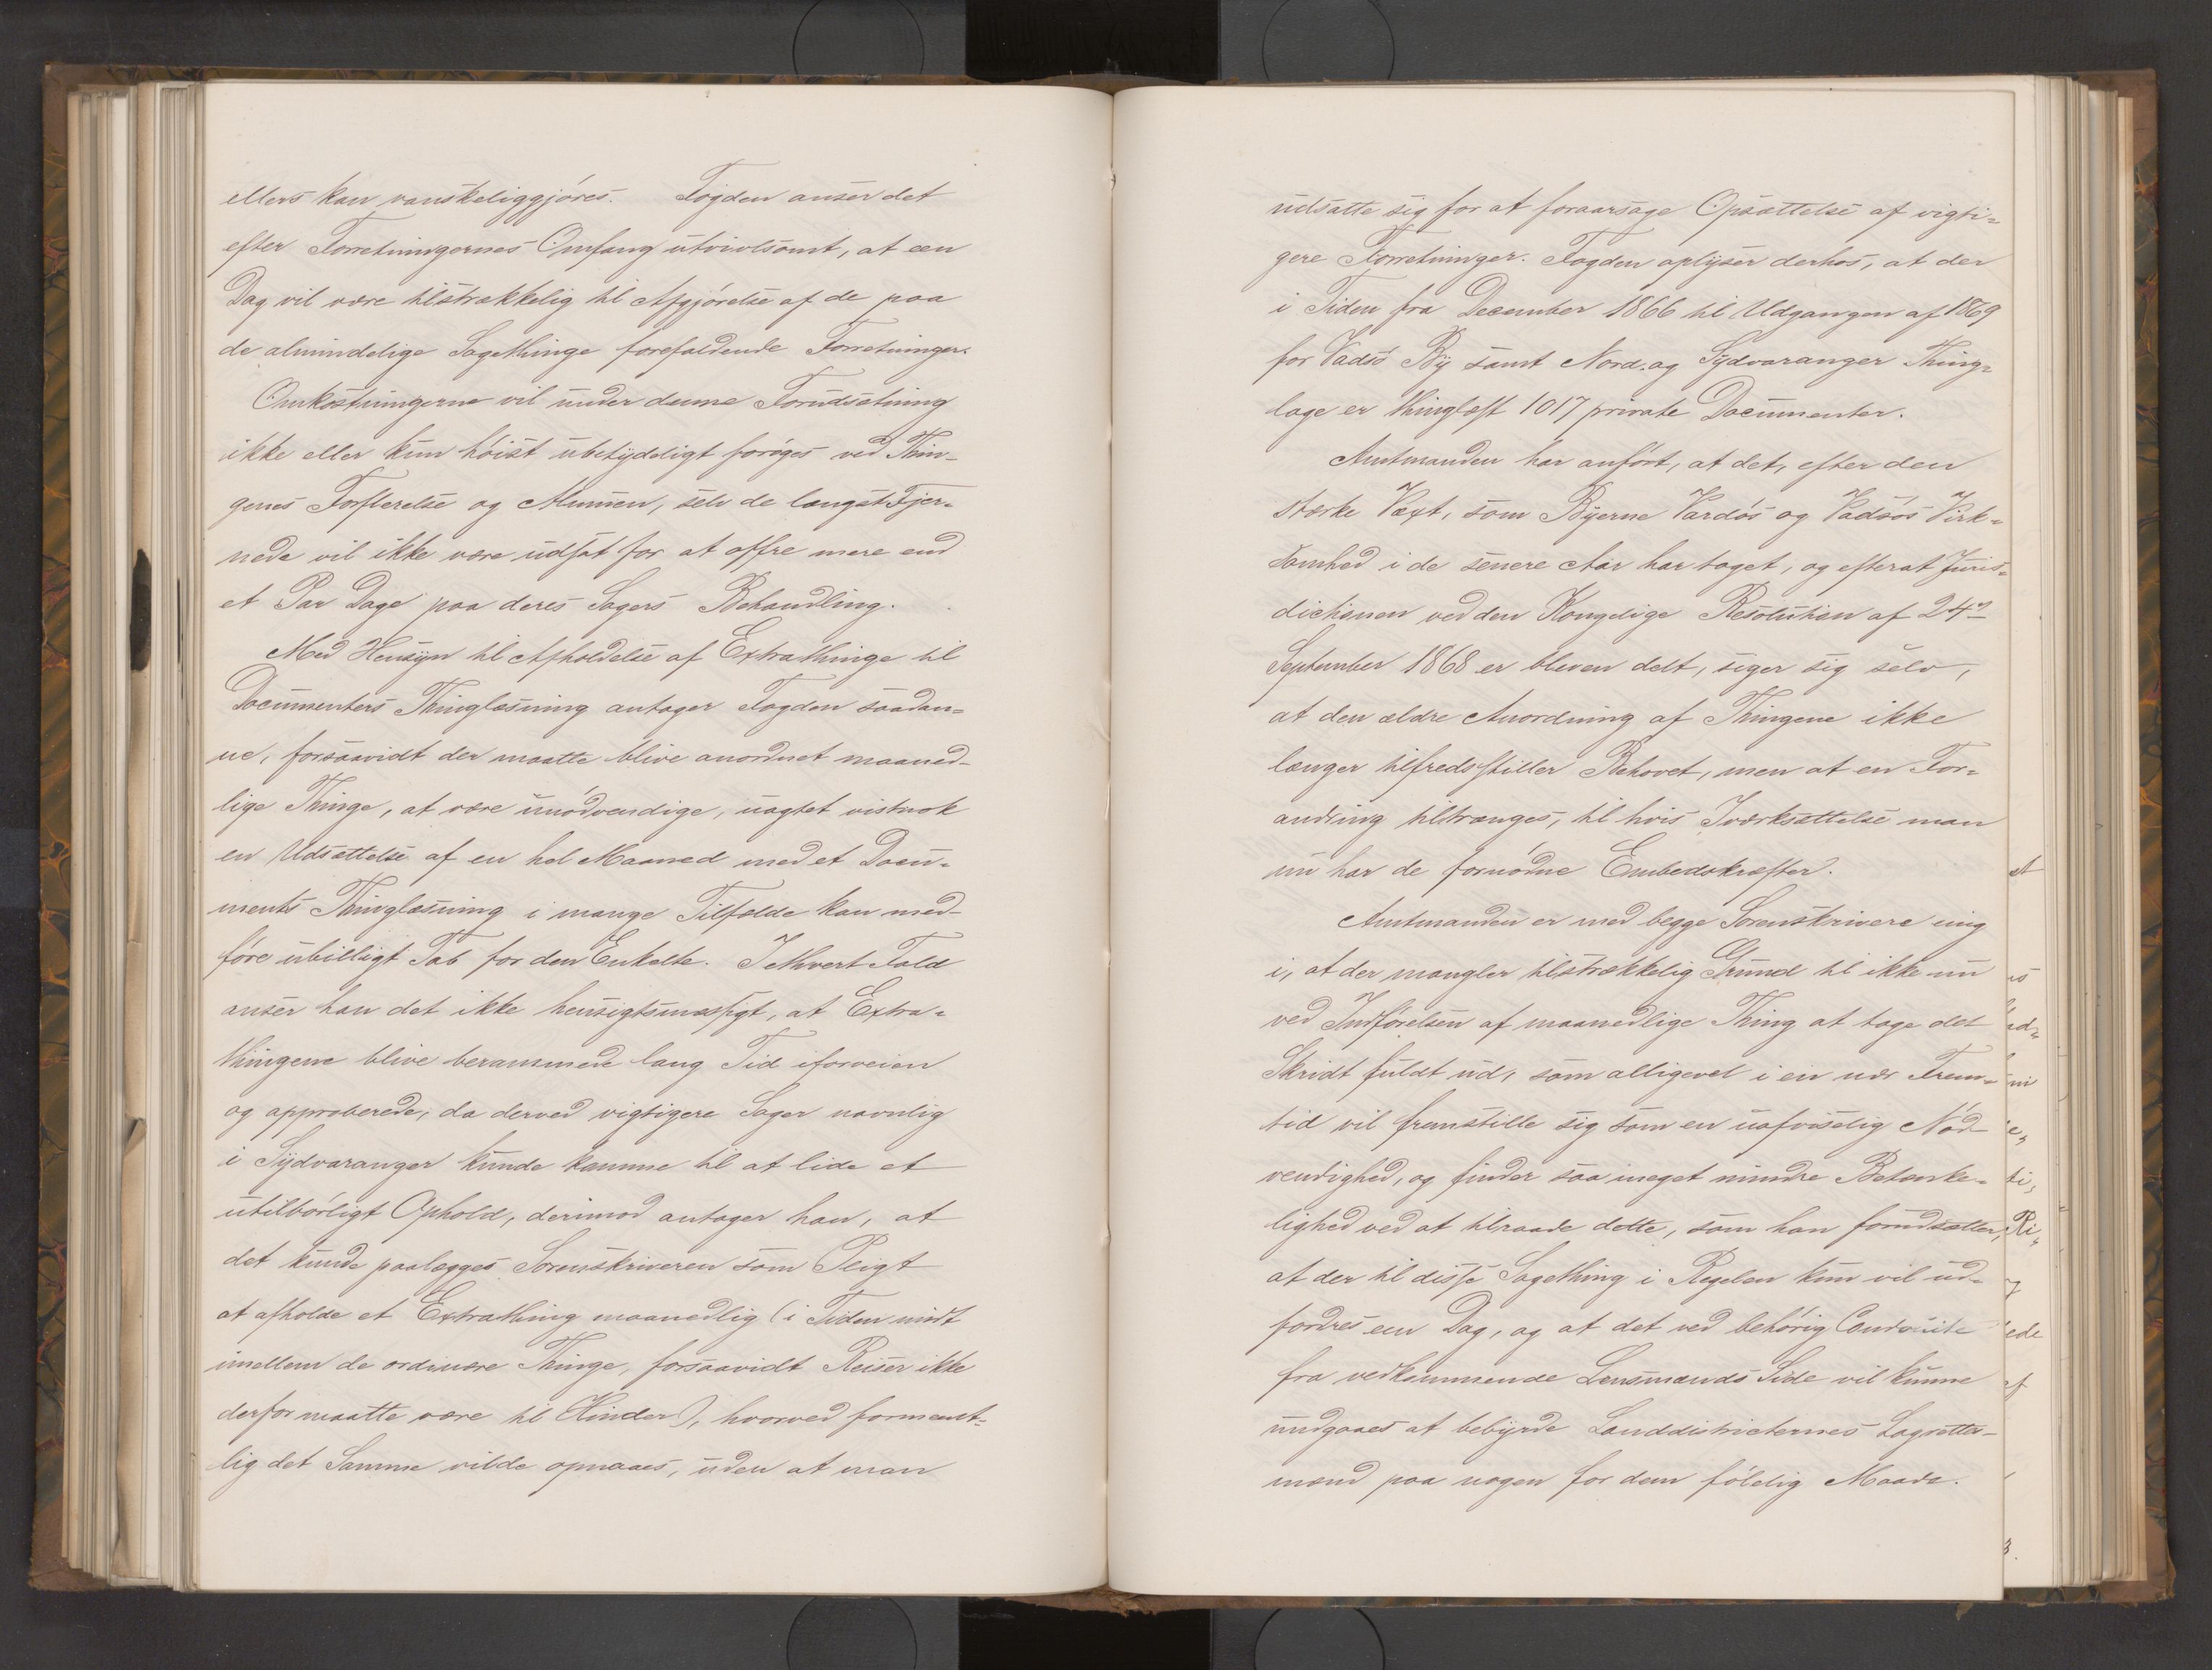 ellers kan vanskeliggjøres. Fogden anser det
efter Forretningernes Omfang utvivlsomt, at een
Dag vil være tilstrækkelig til Afgjørelse af de paa
de almindelige Sagethinge forefaldende Forretninger.
Omkostningerne vil under denne Forudsætning
ikke eller kun høist ubetydeligt forøges ved Thin-
genes Forflerelse og Almuen, selv de længst Fjer-
nede vil ikke være udsat for at offre mere end
et Par Dage paa deres Sagers Behandling.
Med Hensyn til Afholdelse af Extrathinge til
Documenters Thinglæsning antager Fogden saadan-
ne, forsaavidt der maatte blive anordnet maaned-
lige Thinge, at være unødvendige, uagtet vistnok
en Udsættelse af en hel Maaned med et Docu-
ments Thinglæsning i mange Tilfælde kan med-
føre ubilligt Tab for den Enkelte. I ethvert Fald
anser han det ikke hensigtsmæssigt, at Extra-
thingene blive berammede lang Tid iforveien
og approberede, da derved vigtigere Sager navnlig
i Sydvaranger kunde komme til at lide et
utilbørligt Ophold, derimod antager han, at
det kunde paalægges Sorenskriveren som Pligt
at afholde et Extrathing maanedlig (i Tiden midt
imellem de ordinære Thinge, forsaavidt Reiser ikke
derfor maatte være til Hinder), hvorved forment-
lig det Samme vilde opnaaes, uden at man
udsatte sig for at foraarsage Opsættelse af vigti-
gere Forretninger. Fogden oplyser derhos, at der
i Tiden fra December 1866 til Udgangen af 1869
for Vadsø By samt Nord- og Sydvaranger Thing-
lage er thinglæst 1017 private Documenter.
Amtmanden har anført, at det, efter den
stærke Væxt, som Byerne Vardøs og Vadsøs Virk-
somhed i de senere Aar har taget, og efterat Juris-
dictionen ved den Kongelige Resolution af 24de
September 1868 er bleven delt, siger sig selv,
at den ældre Anordning af Thingene ikke
længer tilfredsstiller Behovet, men at en For-
andring tiltrænges, til hvis Iværksættelse man
nu har de fornødne Embedskræfter.
Amtmanden er med begge Sorenskrivere enig
i, at der mangler tilstrækkelig Grund til ikke nu
ved Indførelsen af maanedlige Thing at tage det
Skridt fuldt ud, som alligevel i en nær Frem-
tid vil fremstille sig som en uafviselig Nød-
vendighed, og finder saa meget mindre Betænke-
lighed ved at tilraade dette, som han forudsætter,
at der til disse Sagething i Regelen kun vil ud-
fordres een Dag, og at det ved behørig Conduite
fra vedkommende Lensmænds Side vil kunne
undgaaes at bebyrde Landdistricternes Lagrettes-
mænd paa nogen for dem følelig Maade.